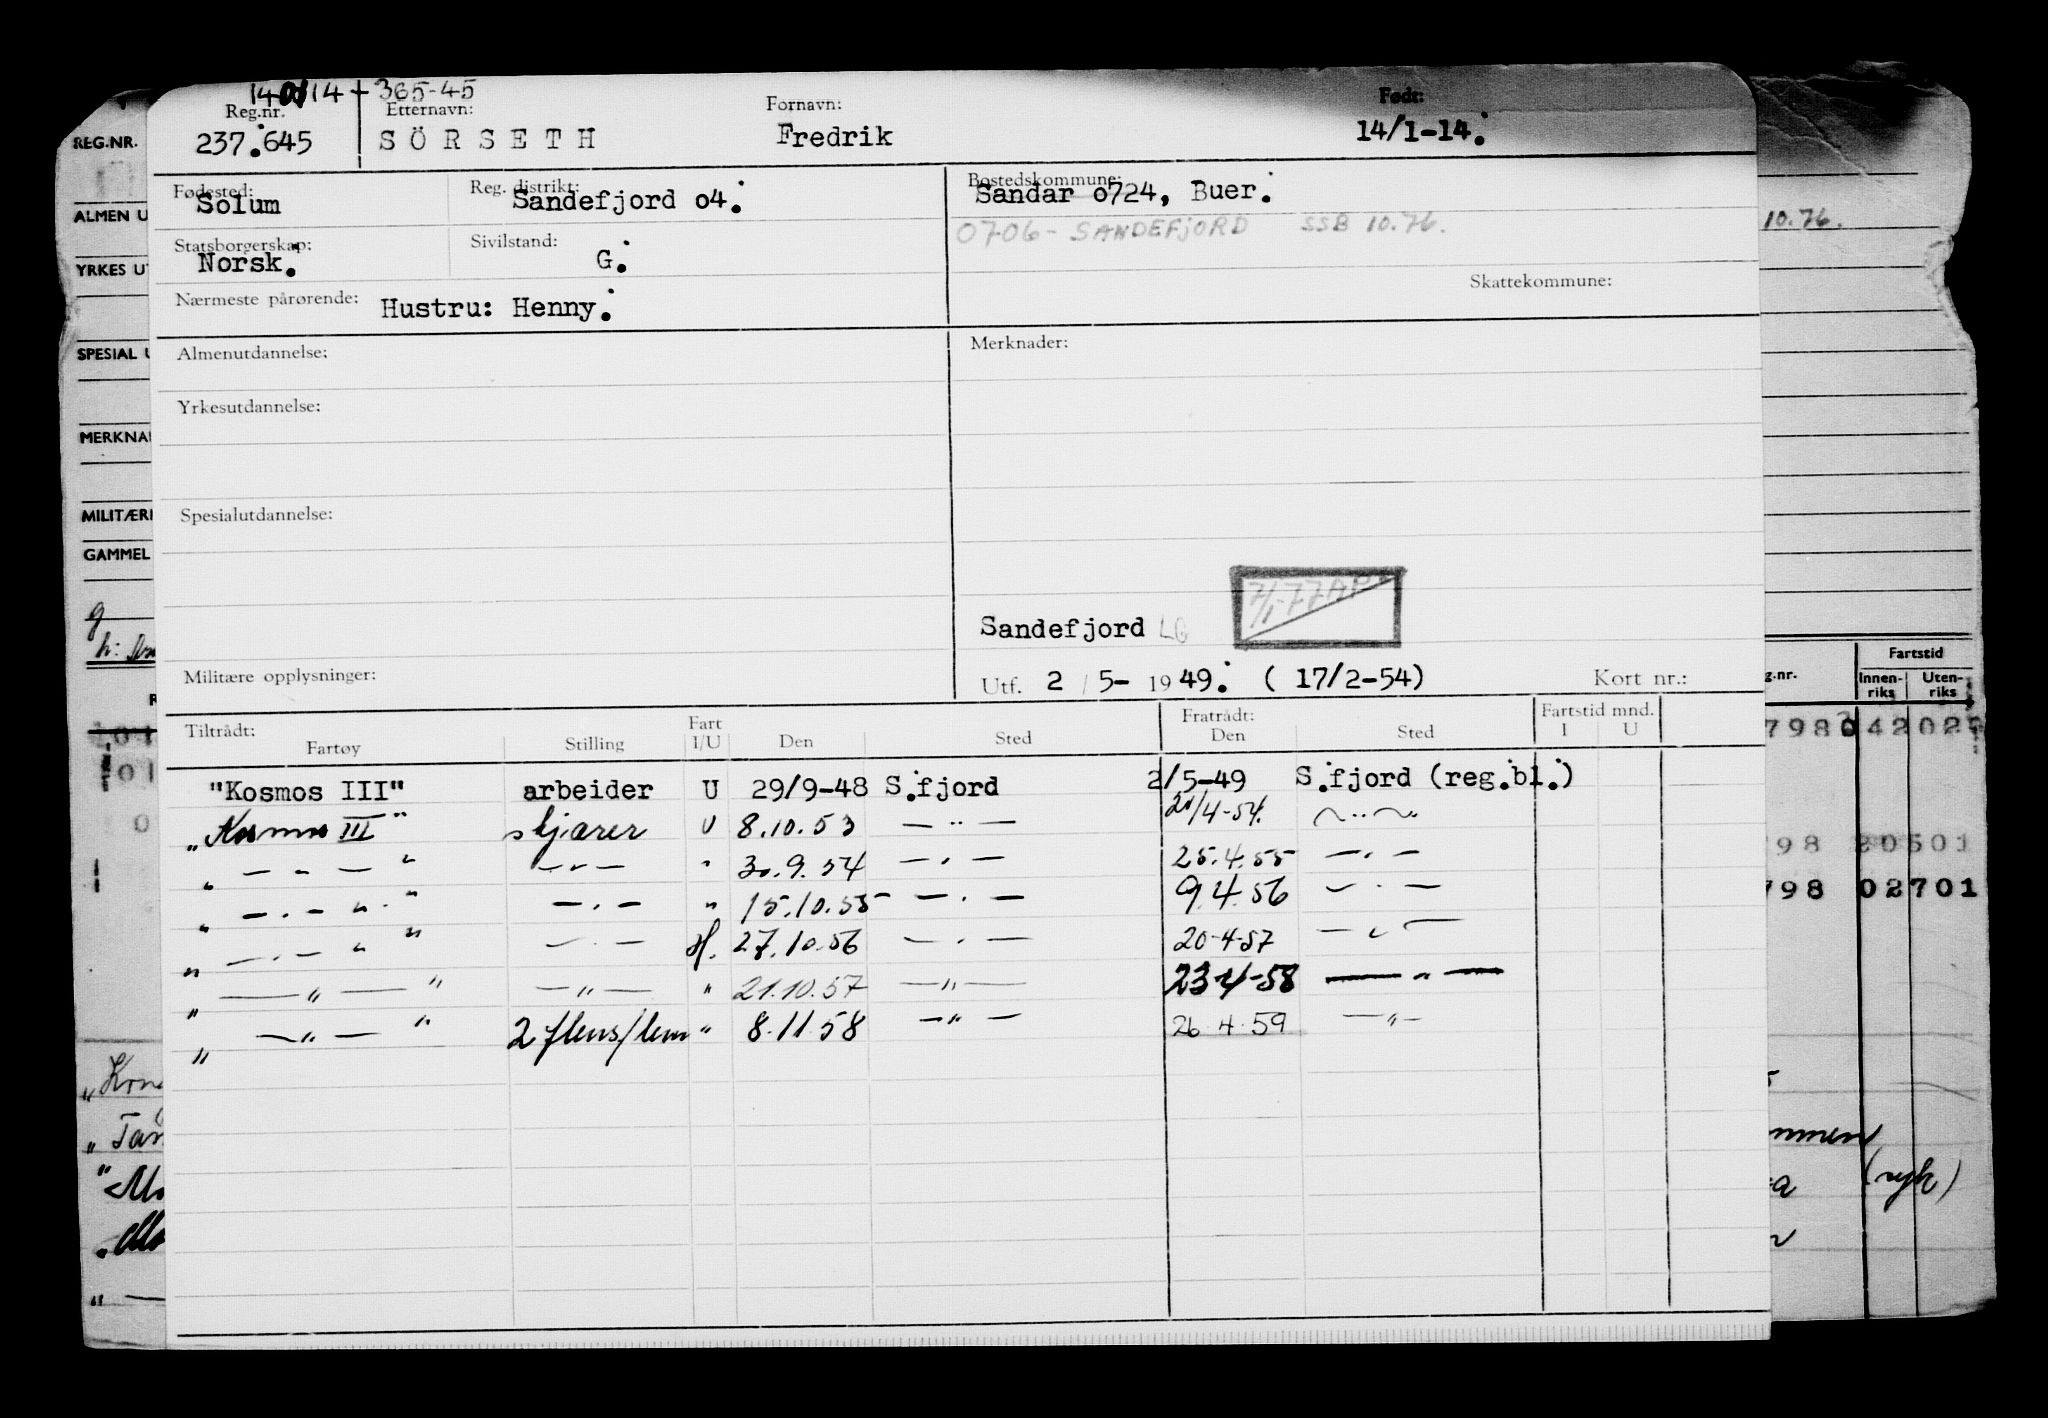 140114 - 365-45
Reg.nr. Etternavn: Fornavn: Født:
237.645 SÖRSETH Fredrik 14/1-14.
Fødested: Reg. distrikt: Bostedskommune:
Solum Sandefjord o4. Sandar o724, Buer.
0706 - SANDEFJORD SSB 10.76.
Statsborgerskap: Sivilstand:
Norsk. G.
Skattekommune:
Nærmeste pårørende: Hustru: Henny.
Almenutdannelse: Merknader:
Yrkesutdannelse:
Spesialutdannelse:
7/1-77 AP
Sandefjord LG
Militære opplysninger: Utf. 2 / 5- 1949. ( 17/2-54) Kort nr.:
Tiltrådt: Fart Fratrådt: Fartstid mnd.
Fartøy Stilling I/U Den Sted Den Sted I U
"Kosmos III" arbeider U 29/9-48 S.fjord 2/5-49 S.fjord (reg.bl.)
"Kosmos III" skjærer U 8.10.53 — " — 21/4-54. — " —
" — " — " — " — " 30.9.54 — " — 25.4.55 — " —
" — " — " — " — " 15.10.55 — " — 9.4.56 — " —
" — " — " — " — H. 27.10.56 — " — 20-4-57 — " —
" — " — " — " — " 21.10.57 — " — 23-4-58 — " —
" — " — " 2 flens/lem " 8.11.58 — " — 26.4.59 — " —
REG.NR.
ALMEN U
10.76.
YRKES UT
SPESIAL U
MERKNA
MILITÆR
GAMMEL
g
h:
Fartstid
g.nr. Innen-riks Uten-riks
01 798 042 02
01
0 798 20501
798 02701
"Kon
"Tan mmen
"Mo a (syk)
"Mo
" —